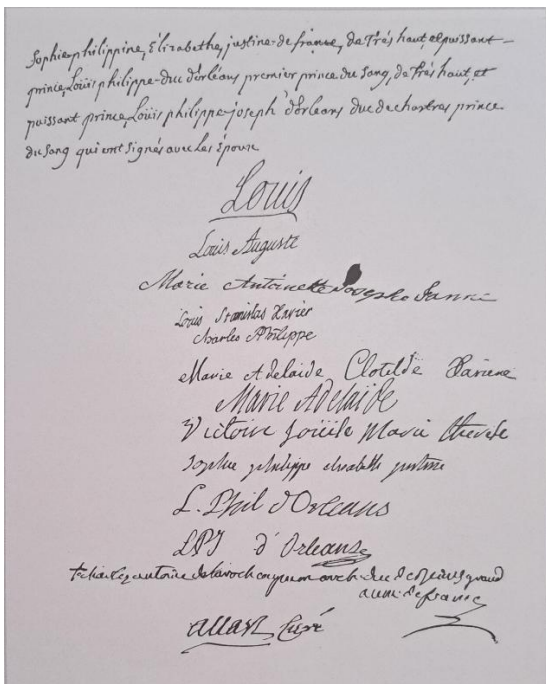 Sophie philippine, Elizabethe, justine de france, de Trés haut, et puissant
prince, Loüis philippe duc d'orleans premier prince du Sang, de Trés haut, et
puissant prince, Loüis philippe joseph d'orleans duc de chartres prince
du Sang qui ont signés avec Les Epoux
Louis
Louis Auguste
Marie Antoinette Josepha Janne
Louis Stanislas Xavier
Charles Philippe
Marie Adelaide Clotilde Xaviere
Marie Adelaïde
Victoire Loüise Marie Therese
Sophie philippe elisabeth justine
L. Phil d'Orleans
LPJ d'Orleans
† charles antoine de la roche aymon arch. duc de Reims grand
aum. de france
allart Curé